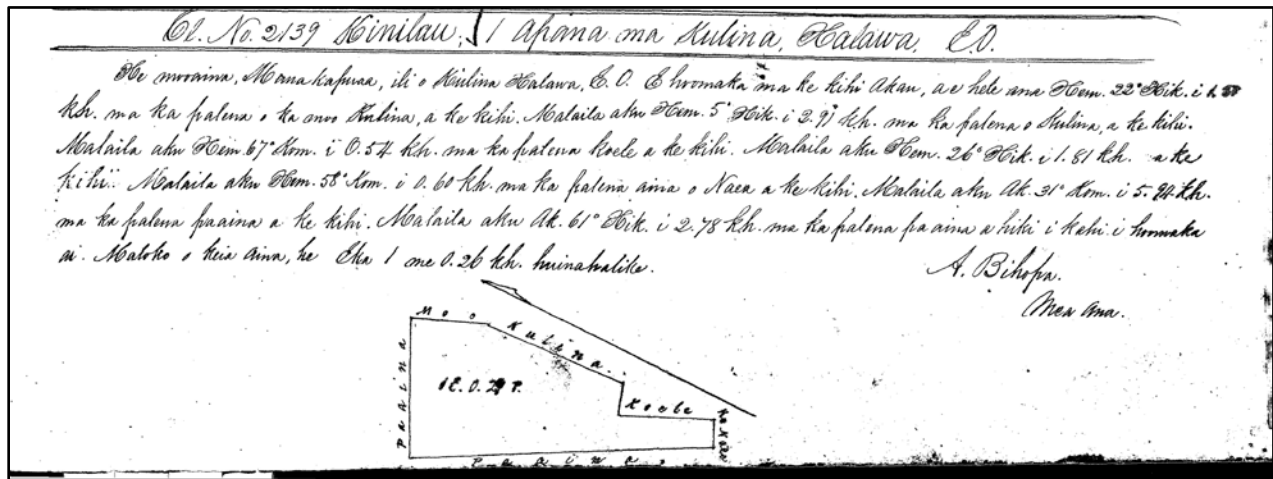 Cl. No. 2139 Kinilau, 1 Apana ma Kulina, Halawa, E.O.
He mooaina, Mauakapuaa, ili o Kulina Halawa, E. O. E hoomaka ma ke kihi Akau, a e hele ana Hem. 22° Hik. i
kh. ma ka palena o ka moo Kulina, a ke kihi. Malaila aku Hem. 5° Hik. i 2.97 kh. ma ka palena o Kulina, a ke kihi.
Malaila aku Hem. 67° Kom. i 0.54 kh. ma ka palena koele a ke kihi. Malaila aku Hem. 26° Hik. i 1.81 kh. a ke
kihi. Malaila aku Hem. 58° Kom. i 0.60 kh. ma ka palena aina o Naea a ke kihi. Malaila aku Ak. 31° Kom. i 5.94 kh.
ma ka palena paaina a ke kihi. Malaila aku Ak. 61° Hik. i 2.78 kh. ma ka palena pa aina a hiki i kahi i hoomaka
ai. Maloko o keia aina, he Eka 1 me 0.26 kh. huinahalike.
A. Bihopa.
Mea ana.
Moo Kulina.
Paaina
1 E. 0. P.
Koele
Paaina